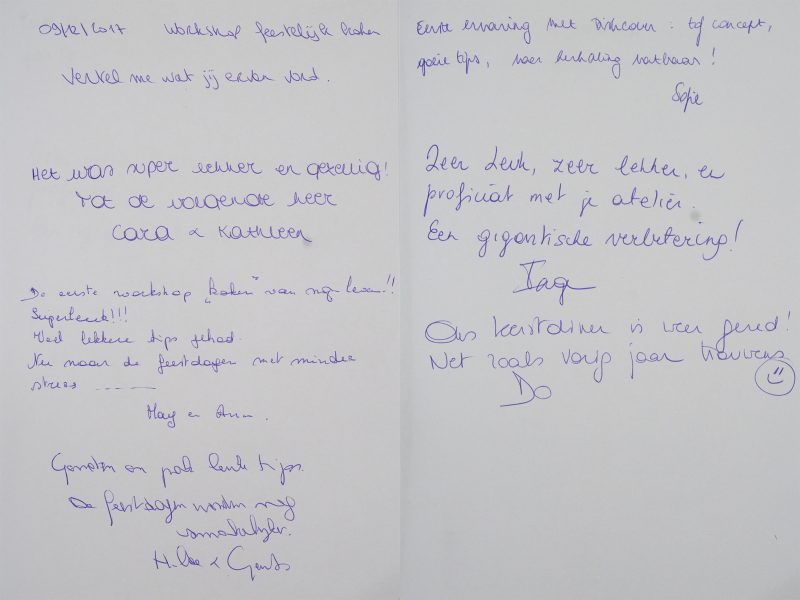 09/12/2017 Workshop feestelijk koken
Vertel me wat jij ervan vond.
Het was super lekker en gezellig!
Tot de volgende keer
Cara & Kathleen
De eerste workshop "koken" van mijn leven!!
Superleuk!!!
Veel lekkere tips gehad.
Nu naar de feestdagen met minder
stress
May en Ann.
Genoten en pak leuke tips.
De feestdagen worden nog
smakelijker.
Hilde & Gerda
Eerste ervaring met Dishcover: tof concept,
goeie tips, voor herhaling vatbaar!
Sofie
Zeer leuk, zeer lekker, en
proficiat met je atelier.
Een gigantische verbetering!
Ons kerstdiner is weer gered!
Net zoals vorig jaar trouwens
Do